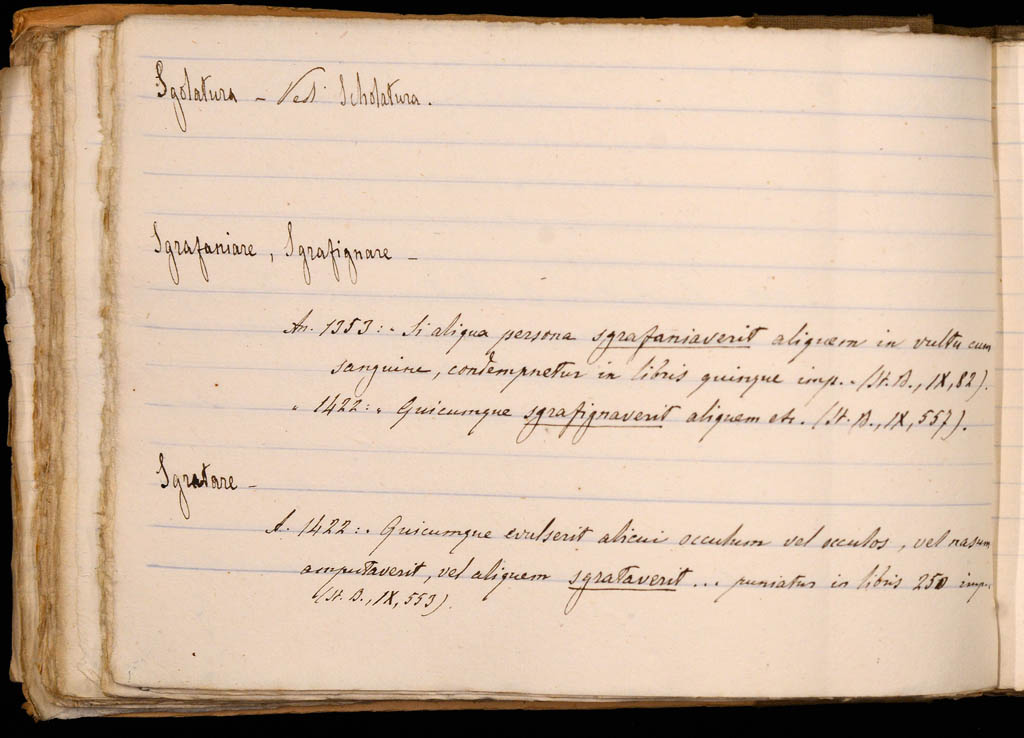 Sgolatura - Vedi Scholatura.
Sgrafaniare, Sgrafignare -
An. 1353: - Si aliqua persona sgrafaniaverit aliquem in vultu cum
sanguine, condempnetur in libris quinque imp. - (St. B., IX, 82).
" 1422: - Quicumque sgrafignaverit aliquem etc. (St. B., IX, 557).
Sgratare -
A. 1422: - Quicumque evulserit alicui occulum vel occulos, vel nasum
amputaverit, vel aliquem sgrataverit ... puniatur in libris 250 imp.
(St. B., IX, 553).